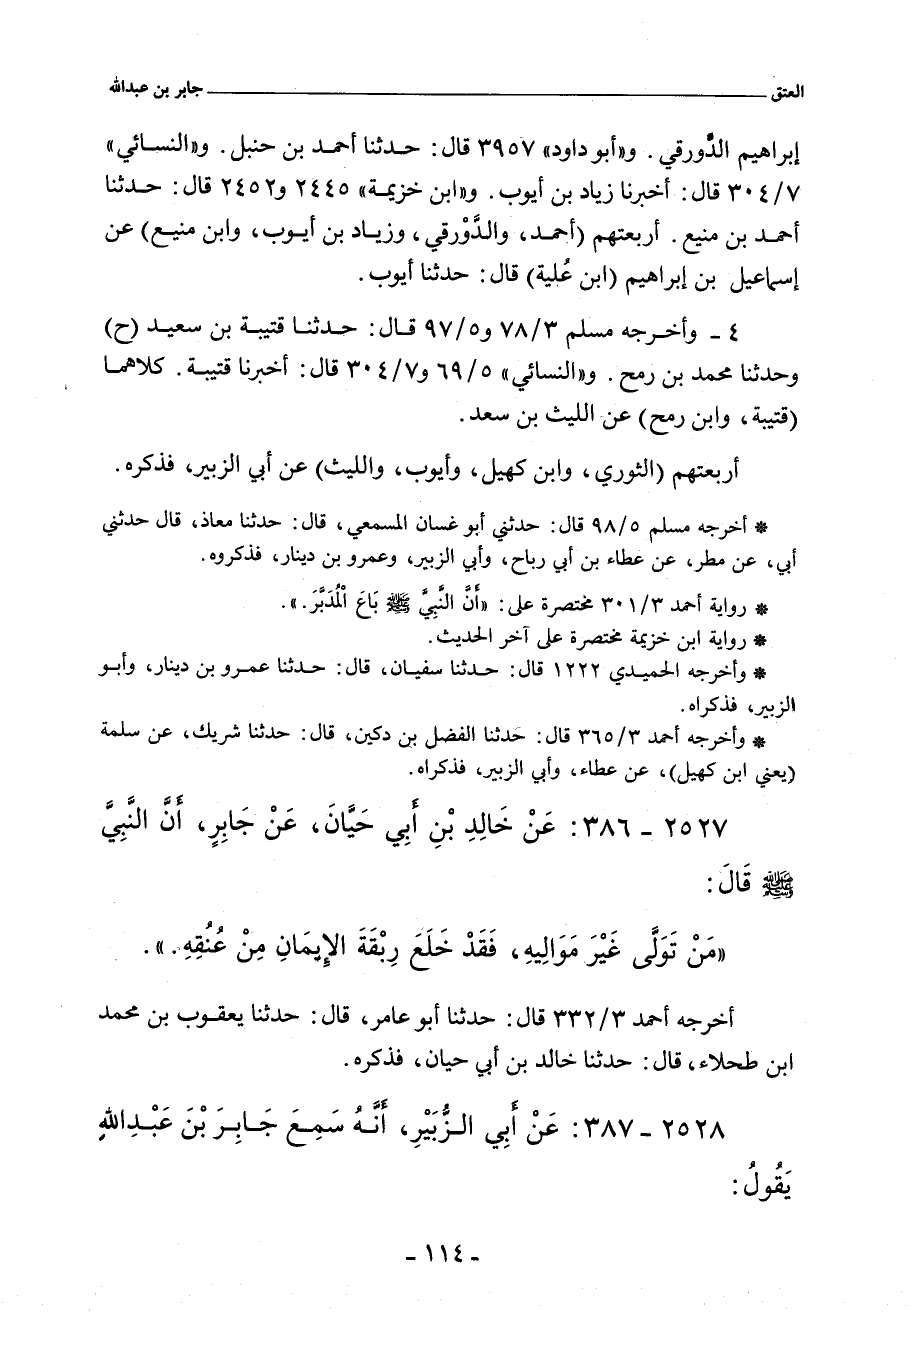 العتق ــــــــــــــــــــــــــــــــ جابر بن عبدالله
إبراهيم الدَّورقي. و«أبو داود» ٣٩٥٧ قال: حدثنا أحمد بن حنبل. و«النسائي»
٣٠٤/٧ قال: أخبرنا زياد بن أيوب. و«ابن خزيمة» ٢٤٤٥ و٢٤٥٢ قال: حدثنا
أحمد بن منيع. أربعتهم (أحمد، والدَّوْرقي، وزياد بن أيوب، وابن منيع) عن
إسماعيل بن إبراهيم (ابن عُلية) قال: حدثنا أيوب.
٤ ـ وأخرجه مسلم ٧٨/٣ و٩٧/٥ قال: حدثنا قتيبة بن سعيد (ح)
وحدثنا محمد بن رمح. و«النسائي» ٦٩/٥ و٣٠٤/٧ قال: أخبرنا قتيبة. كلاهما
(قتيبة، وابن رمح) عن الليث بن سعد.
أربعتهم (الثوري، وابن كهيل، وأيوب، والليث) عن أبي الزبير، فذكره.
* أخرجه مسلم ٩٨/٥ قال: حدثني أبو غسان المسمعي، قال: حدثنا معاذ، قال حدثني
أبي، عن مطر، عن عطاء بن أبي رباح، وأبي الزبير، وعمرو بن دينار، فذكروه.
* رواية أحمد ٣٠١/٣ مختصرة على: «أَنَّ النَّبِيَّ ﷺ بَاعَ الْمُدَبَّرَ.».
* رواية ابن خزيمة مختصرة على آخر الحديث.
* وأخرجه الحميدي ١٢٢٢ قال: حدثنا سفيان، قال: حدثنا عمرو بن دينار، وأبو
الزبير، فذكراه.
* وأخرجه أحمد ٣٦٥/٣ قال: حدثنا الفضل بن دكين، قال: حدثنا شريك، عن سلمة
(يعني ابن كهيل)، عن عطاء، وأبي الزبير، فذكراه.
٢٥٢٧ ـ ٣٨٦: عَنْ خَالِدِ بْنِ أَبِي حَيَّانَ، عَنْ جَابِرٍ، أَنَّ النَّبِيَّ
ﷺ قَالَ:
«مَنْ تَوَلَّى غَيْرَ مَوَالِيهِ، فَقَدْ خَلَعَ رِبْقَةَ الإِيمَانِ مِنْ عُنُقِهِ.».
أخرجه أحمد ٣٣٢/٣ قال: حدثنا أبو عامر، قال: حدثنا يعقوب بن محمد
ابن طحلاء، قال: حدثنا خالد بن أبي حيان، فذكره.
٢٥٢٨ ـ ٣٨٧: عَنْ أَبِي الزُّبَيْرِ، أَنَّهُ سَمِعَ جَابِرَ بْنَ عَبْدِاللهِ
يَقُولُ:
ـ ١١٤ ـ